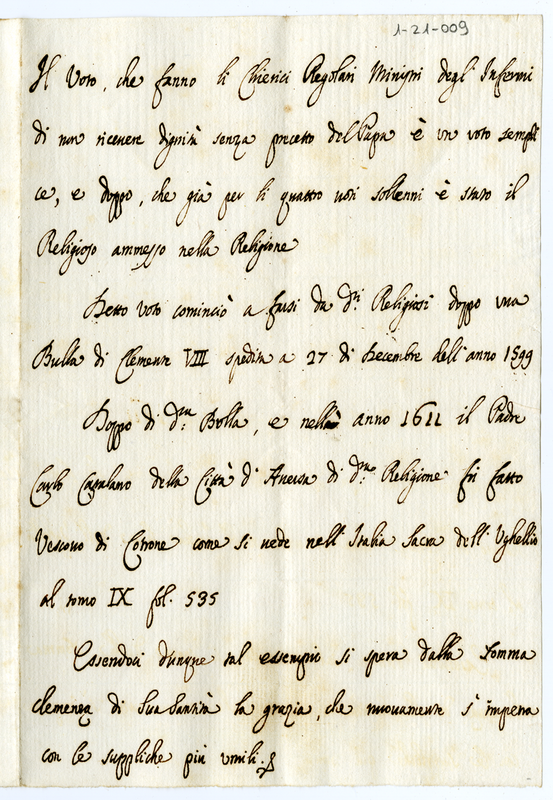 1-21-009
Il Voto, che fanno li Chierici Regolari Ministri degl'Infermi
di non ricevere dignità senza precetto del Papa è un voto sempli
ce, e doppo, che già per li quattro voti sollenni è stato il
Religioso ammesso nella Religione
Detto voto cominciò a farsi da d.ti Religiosi doppo una
Bulla di Clemente VIII spedita a 27 di Decembre dell'anno 1599
Doppo di d.ta Bolla, e nell' anno 1611 il Padre
Carlo Catalano della Città d'Aversa di d.ta Religione fù fatto
Vescovo di Cotrone come si vede nell'Italia Sacra dell'Vghellio
al tomo IX fol. 535
Essendoci dunque tal essempio si spera dalla somma
clemenza di Sua Santità la grazia, che nuovamente s'impetra
con le suppliche più umili.